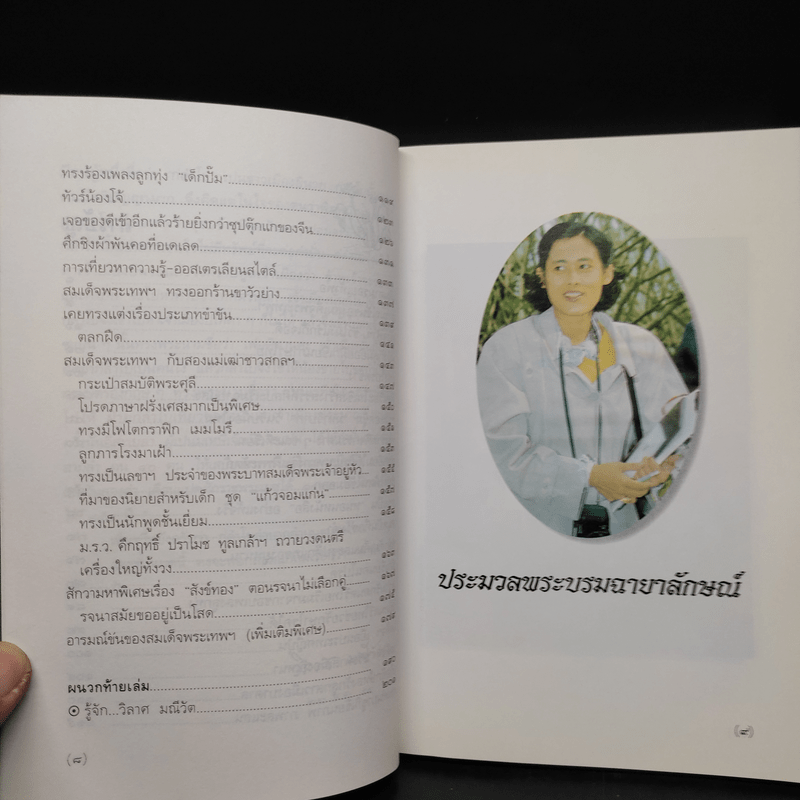 ทรงร้องเพลงลูกทุ่ง "เด็กปั๊ม".......................... ๑๑๙
ทัวร์น้องโจ้.......................... ๑๒๓
เจอของดีเข้าอีกแล้วร้ายยิ่งกว่าซุปตุ๊กแกของจีน.............. ๑๒๖
ศึกชิงผ้าพันคอที่อเดเลด.......................... ๑๓๑
การเที่ยวหาความรู้-ออสเตรเลียนสไตล์.................. ๑๓๓
สมเด็จพระเทพฯ ทรงออกร้านขาวัวย่าง.................. ๑๓๗
เคยทรงแต่งเรื่องประเภทขำขัน.......................... ๑๓๙
ตลกฝืด.......................... ๑๔๑
สมเด็จพระเทพฯ กับสองแม่เฒ่าชาวสกลฯ.................. ๑๔๓
กระเป๋าสมบัติพระศุลี.......................... ๑๔๗
โปรดภาษาฝรั่งเศสมากเป็นพิเศษ.......................... ๑๕๐
ทรงมีโฟโตกราฟิก เมมโมรี่.......................... ๑๕๑
ลูกภารโรงมาเฝ้า.......................... ๑๕๓
ทรงเป็นเลขาฯ ประจำของพระบาทสมเด็จพระเจ้าอยู่หัว... ๑๕๕
ที่มาของนิยายสำหรับเด็ก ชุด "แก้วจอมแก่น"........... ๑๕๗
ทรงเป็นนักพูดชั้นเยี่ยม.......................... ๑๕๙
ม.ร.ว. คึกฤทธิ์ ปราโมช ทูลเกล้าฯ ถวายวงดนตรี
เครื่องใหญ่ทั้งวง.......................... ๑๖๓
สักวามหาพิเศษเรื่อง "สังข์ทอง" ตอนรจนาไม่เลือกคู่...... ๑๖๗
รจนาสมัยขออยู่เป็นโสด.......................... ๑๗๕
อารมณ์ขันของสมเด็จพระเทพฯ (เพิ่มเติมพิเศษ)........... ๑๗๙
ผนวกท้ายเล่ม.......................... ๑๙๖
⊙ รู้จัก...วิลาศ มณีวัต.......................... ๒๐๑
(๘)
ประมวลพระบรมฉายาลักษณ์
(๙)